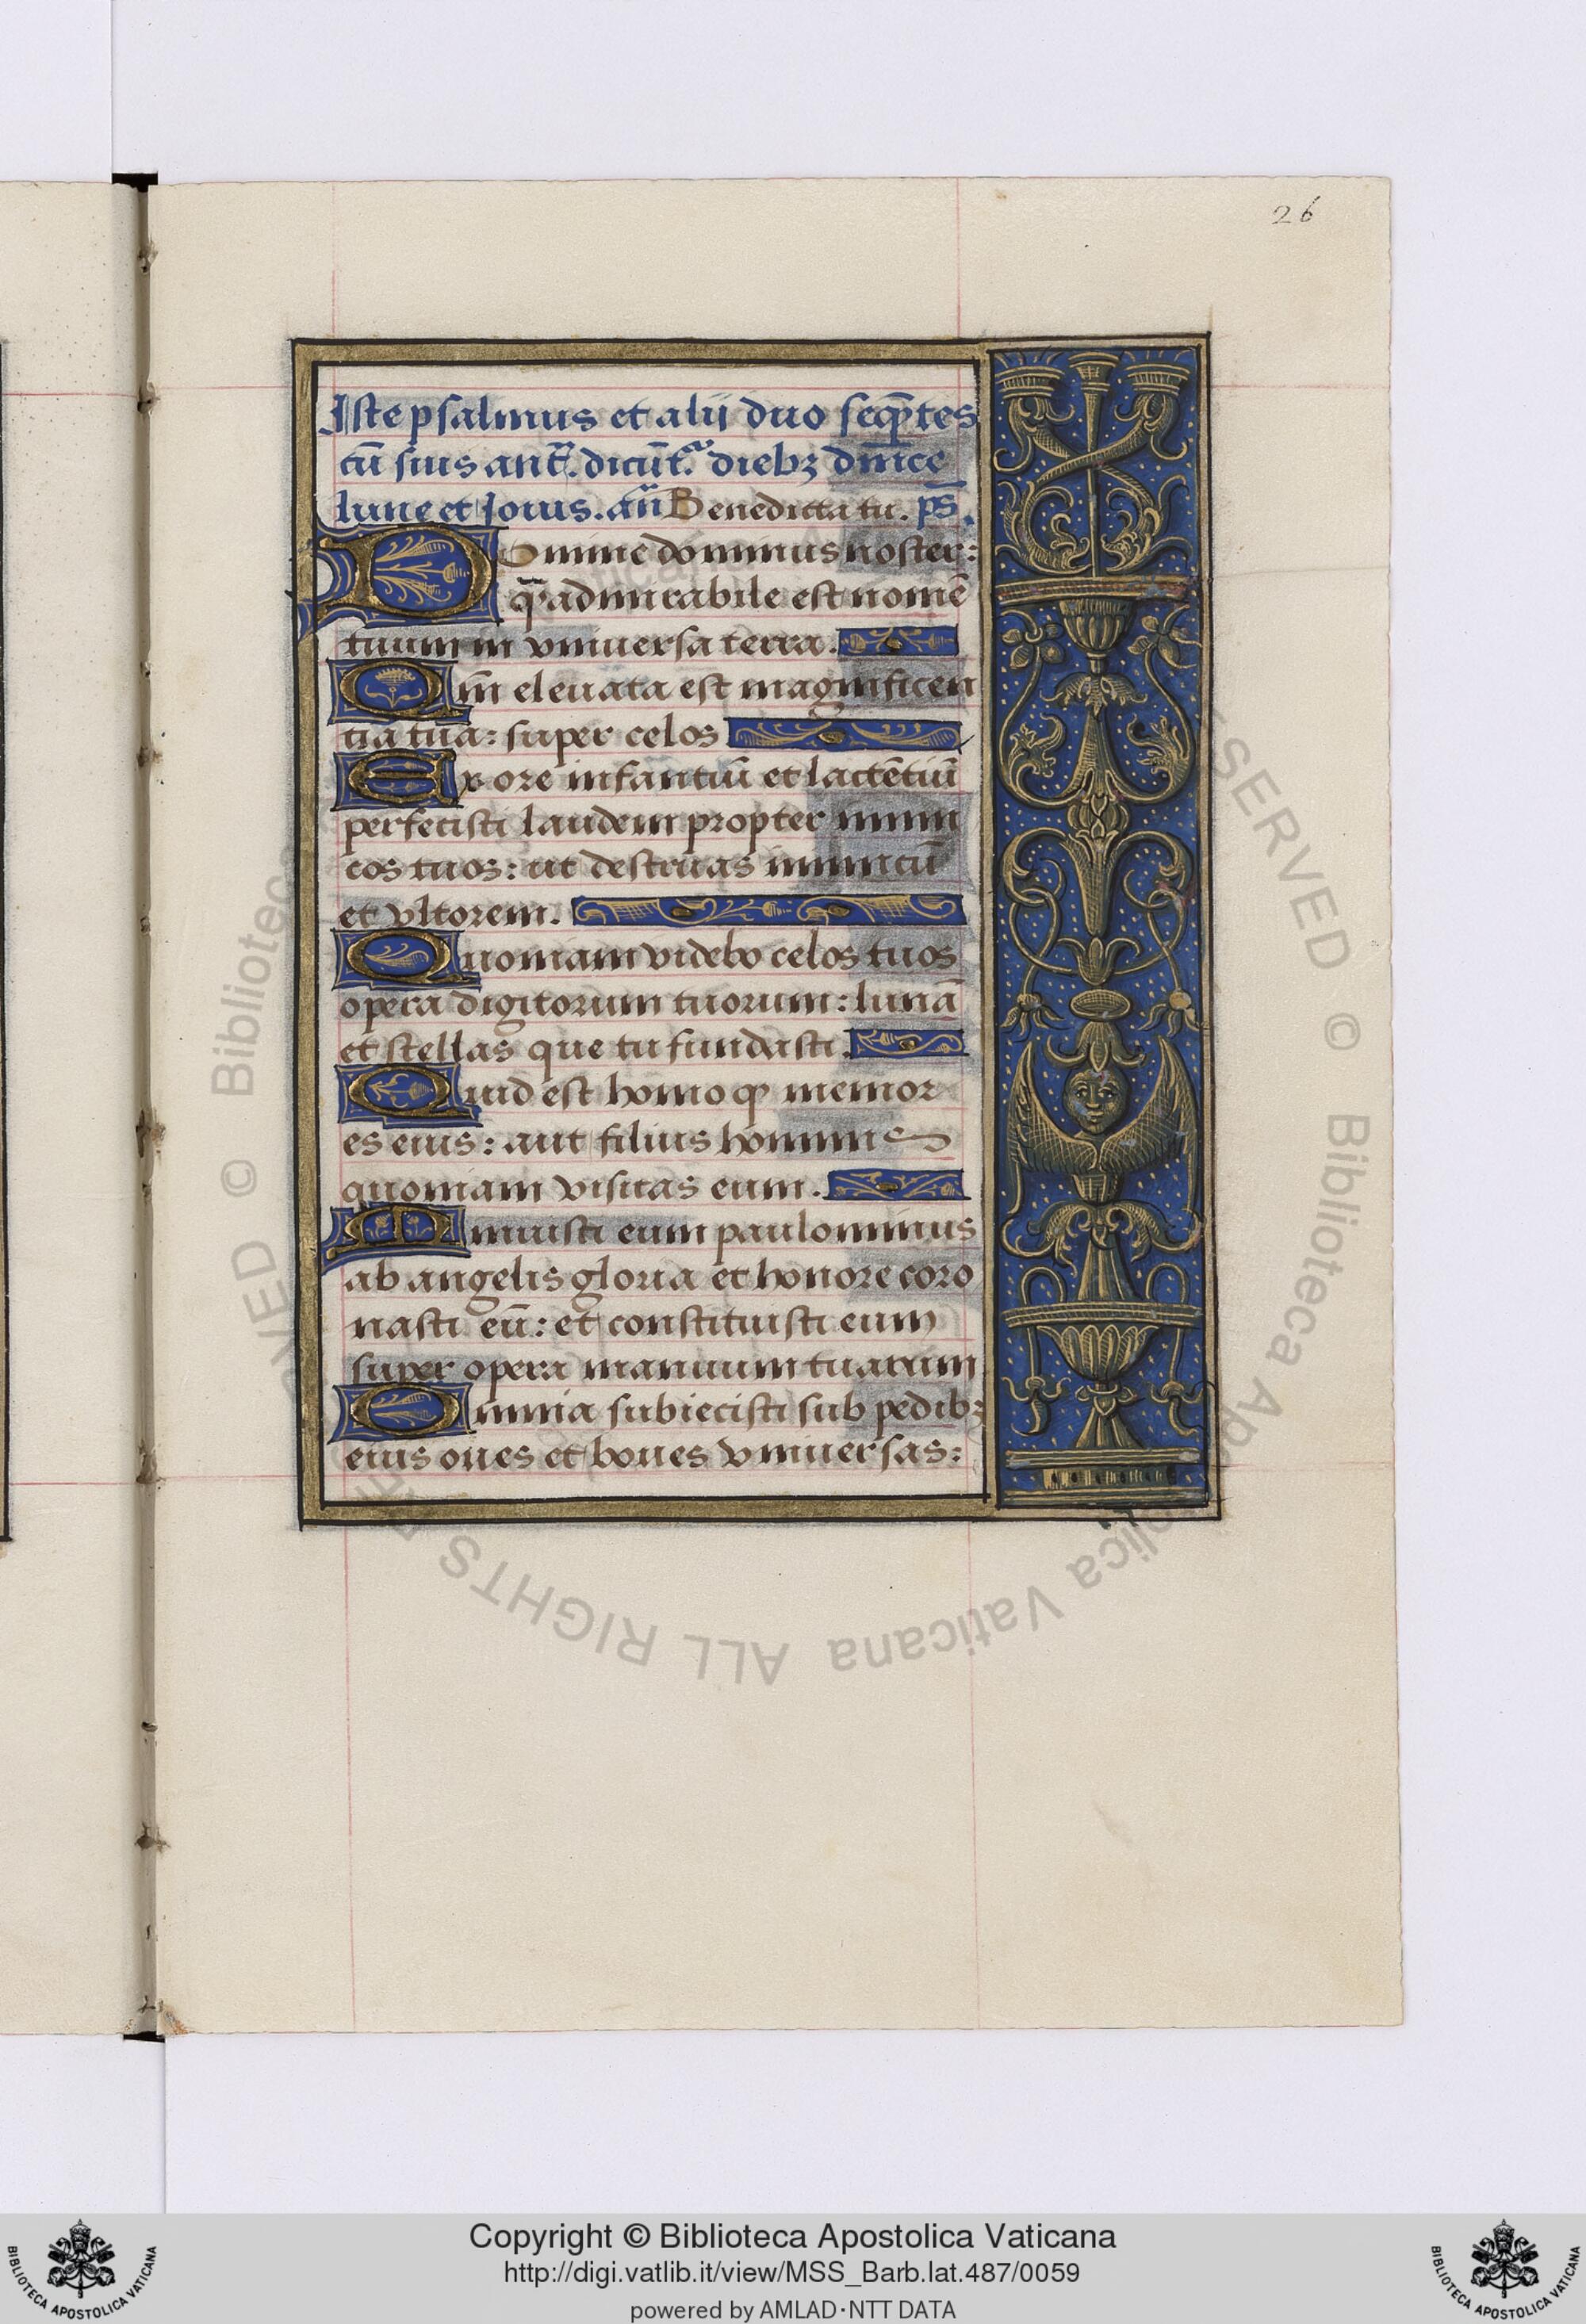 26
Iste psalmus et alii duo seqp̄tes
cū suis ant̄. dicūt.ᵃ diebꝫ dnīce
lune et Jouis. añ Benedicta tu. ps̄.
Domine dominus noster:
q̄ admirabile est nomē
tuum in vniuersa terra.
Qm̄ eleuata est magnificen
tia tua: super celos
Ex ore infantiū et lactētiū
perfecisti laudem propter inimi
cos tuos: ut destruas inimicū
et vltorem.
Quoniam videbo celos tuos
opera digitorum tuorum: lunā
et stellas que tu fundasti.
Quid est homo ꝙ memor
es eius: aut filius homines
quoniam visitas eum.
Minuisti eum paulominus
ab angelis gloria et honore coro
nasti eū: et constituisti eum
super opera manuum tuarum
Omnia subiecisti sub pedibꝫ
eius oues et boues vniuersas:
© Biblioteca Apostolica Vaticana ALL RIGHTS RESERVED
Copyright © Biblioteca Apostolica Vaticana
http://digi.vatlib.it/view/MSS_Barb.lat.487/0059
powered by AMLAD·NTT DATA
BIBLIOTECA APOSTOLICA VATICANA
BIBLIOTECA APOSTOLICA VATICANA